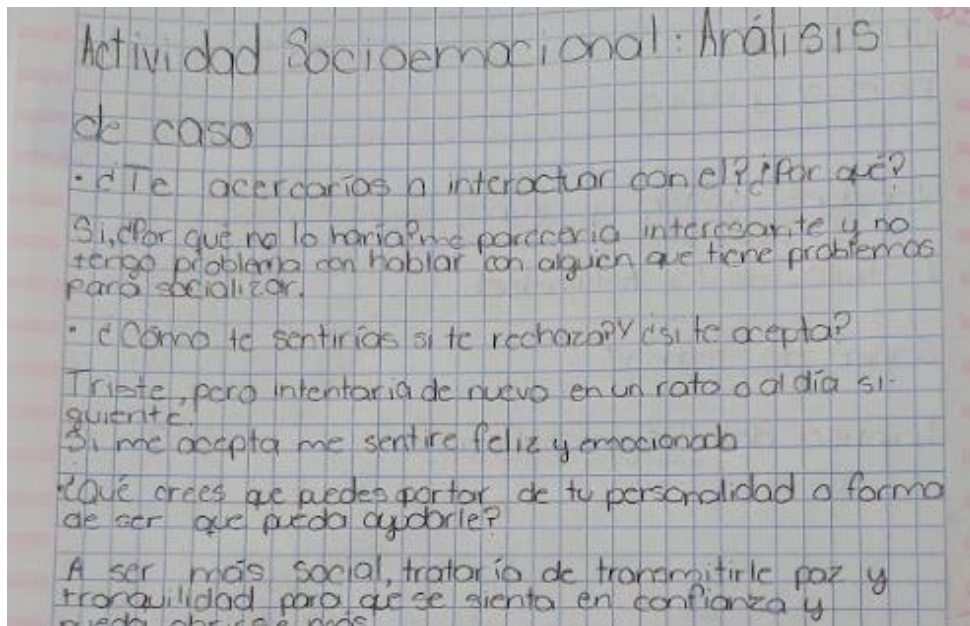 Actividad Socioemocional: Análisis
de caso
· ¿Te acercarías a interactuar con el? ¿Por qué?
Si, ¿Por qué no lo haría? me parecería interesante y no
tengo problema con hablar con alguien que tiene problemas
para socializar.
· ¿Cómo te sentirías si te rechaza? Y ¿si te acepta?
Triste, pero intentaria de nuevo en un rato o al día si-
guiente.
Si me acepta me sentire feliz y emocionado
· ¿Qué crees que puedes portar de tu personalidad o forma
de ser que pueda ayudarle?
A ser más social, trataría de transmitirle paz y
tranquilidad para que se sienta en confianza y
pueda abrirse más